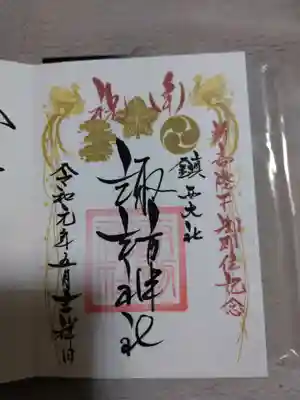 奉祝
新帝陛下御即位記念
鎮西大社
諏訪神社
令和元年五月吉祥日